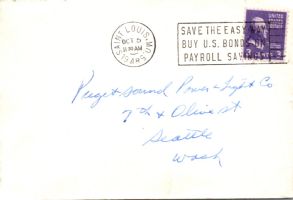 SAINT LOUIS, MO.
OCT 6
11 30 AM
SAVE THE EASY WAY
BUY U.S. BONDS
PAYROLL SAVINGS
Puget Sound Power & Light Co
7th & Olive St
Seattle
Wash